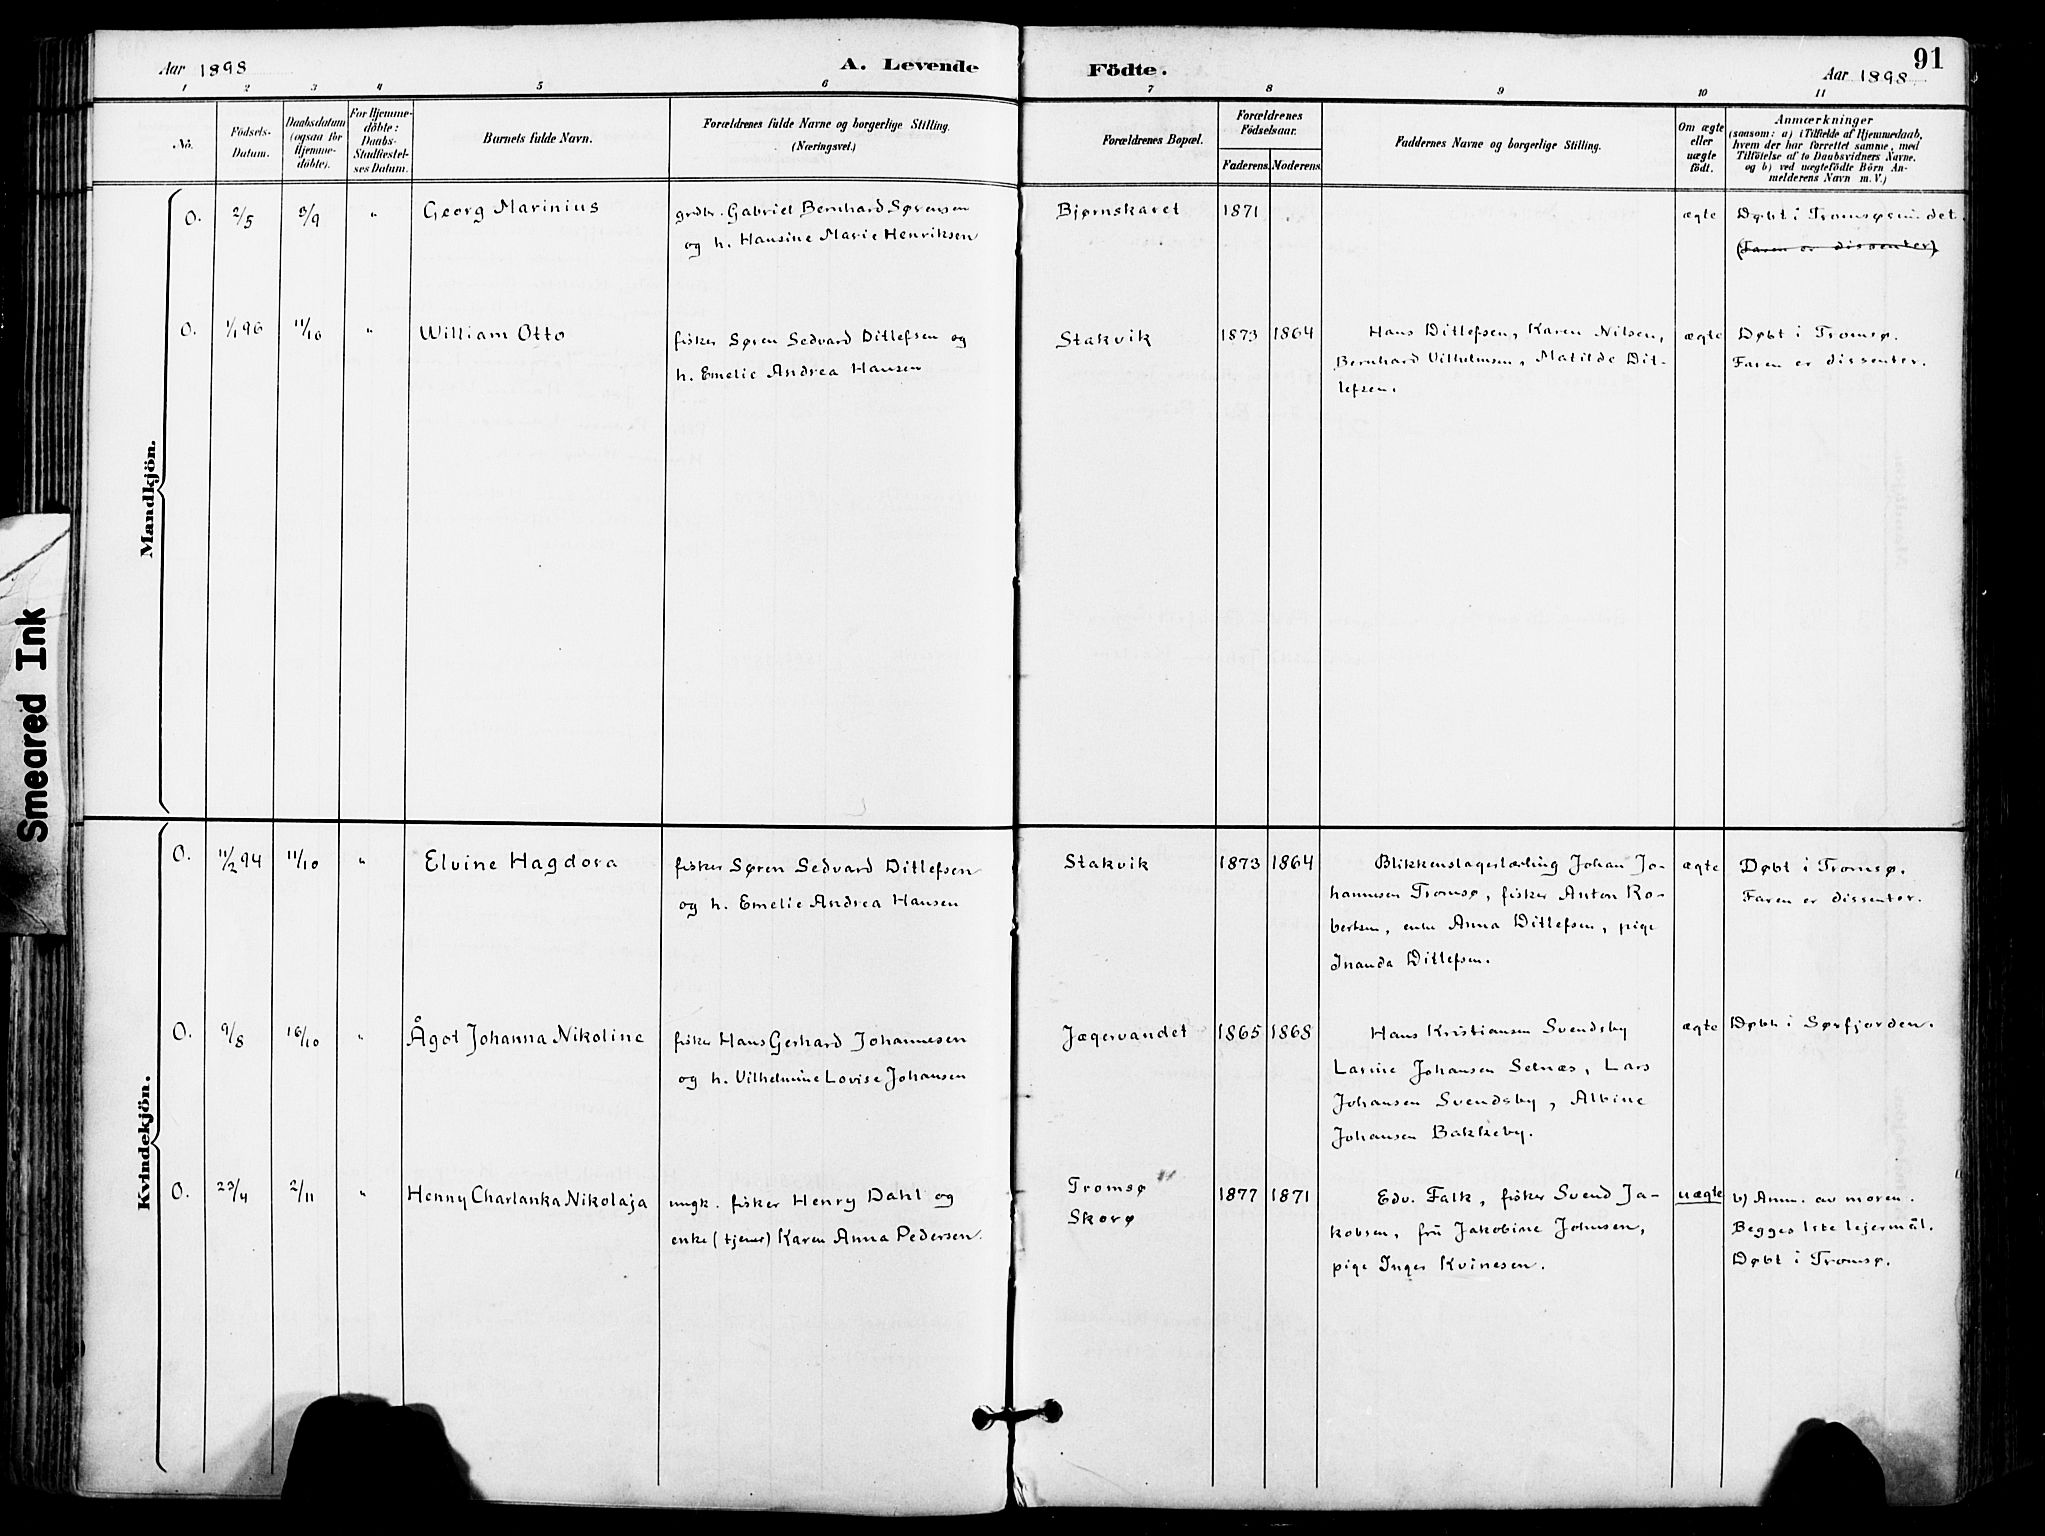 91
Aar 1898
A. Levende
Födte.
Aar 1898
1 2 3 4 5 6 7 8 9 10 11
No.
Födsels-
Datum.
Daabsdatum
(ogsaa for
Hjemme-
döbte).
For Hjemme-
döbte:
Daabs-
Stadfæstel-
ses Datum.
Barnets fulde Navn.
Forældrenes fulde Navne og borgerlige Stilling.
(Næringsvei.)
Forældrenes Bopæl.
Forældrenes
Födselsaar.
Faderens.
Moderens.
Faddernes Navne og borgerlige Stilling.
Om ægte
eller
uægte
födt.
Anmærkninger
(saasom: a) i Tilfælde af Hjemmedaab,
hvem der har forrettet samme, med
Tilföielse af to Daabsvidners Navne,
og b) ved uægtefödte Börn An-
melderens Navn m. V.)
Mandkjön.
O. 2/5 3/9 " Georg Marinius
grdbr. Gabriel Bernhard Sørensen
og h. Hansine Marie Henriksen
Bjørnskaret 1871 ægte
Døbt i Tromsøsundet.
(Faren er dissenter)
O. 1/1 96 11/10 " William Otto
fisker Søren Sedvard Ditlefsen og
h. Emelie Andrea Hansen
Stakvik 1873 1864
Hans Ditlefsen, Karen Nilsen,
Bernhard Vilhelmsen, Matilde Dit-
lefsen.
ægte
Døbt i Tromsø.
Faren er dissenter.
Smeared Ink
Kvindekjön.
O. 11/2 94 11/10 " Elvine Hagdora
fisker Søren Sedvard Ditlefsen
og h. Emelie Andrea Hansen
Stakvik 1873 1864
Blikkenslagerlærling Johan Jo-
hannesen Tromsø, fisker Anton Ro-
bertsen, enke Anna Ditlefsen, pige
Inanda Ditlefsen.
ægte
Døbt i Tromsø.
Faren er dissenter.
O. 9/8 16/10 " Ågot Johanna Nikoline
fisker Hans Gerhard Johannesen
og h. Vilhelmine Lovise Johansen
Jægervandet 1865 1868
Hans Kristiansen Svendsby
Lasine Johansen Selnæs, Lars
Johansen Svendsby, Albine
Johansen Bakkeby.
ægte
Døbt i Sørfjorden.
O. 23/4 2/11 " Henny Charlanka Nikolaja
ungk. fisker Henry Dahl og
enke (tjener) Karen Anna Pedersen.
Tromsø
Skorø
1877 1871
Edv. Falk, fisker Svend Ja-
kobsen, frú Jakobine Johnsen,
pige Inger Kvinesen.
uægte
b) Anm. av moren.
Begges 1ste lejermål.
Døbt i Tromsø.